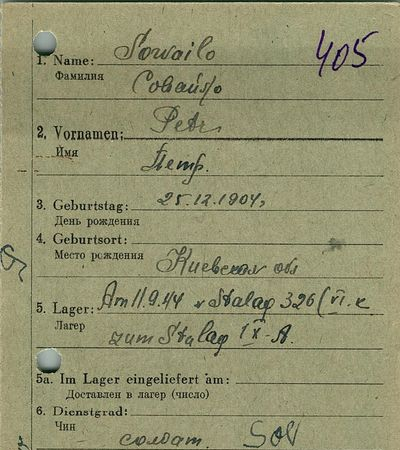 405
1. Name: Sowailo
Фамилия Совайло
2. Vornamen: Petr
Имя Петр.
3. Geburtstag: 25.12.1904,
День рождения
4. Geburtsort:
Место рождения Киевская обл
5. Lager: Am 11.9.44 v Stalag 326 (VI. K
Лагер zum Stalag IX-A.
5a. Im Lager eingeliefert am:
Доставлен в лагер (число)
6. Dienstgrad:
Чин солдат.